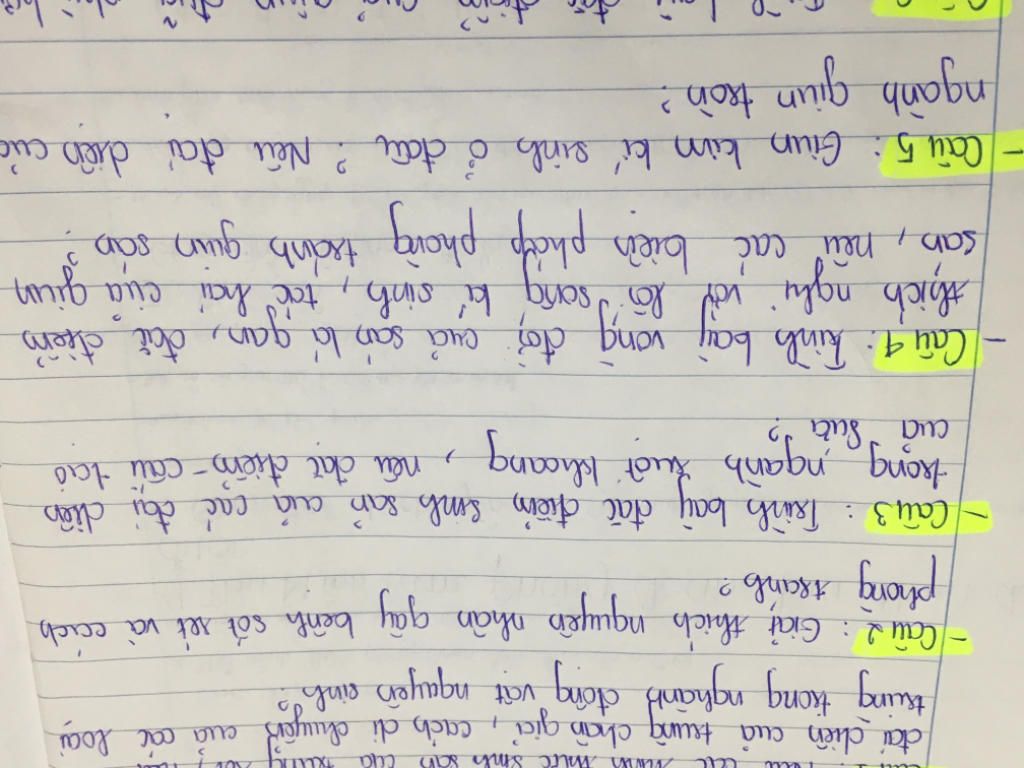 các hình thức sinh sản của trùng roi,
đại diện của trùng chân giả, cách di chuyển của các loại
trùng trong nghành động vật nguyên sinh?
- Câu 2: Giải thích nguyên nhân gây bệnh sốt rét và cách
phòng tránh?
- Câu 3: Trình bày đặc điểm sinh sản của các đại diện
trong ngành ruột khoang, nêu đặc điểm - cấu tạo
của sứa?
- Câu 4: Trình bày vòng đời của sán lá gan, đặc điểm
thích nghi với lối sống kí sinh, tác hại của giun
sán, nêu các biện pháp phòng tránh giun sán?
- Câu 5: Giun kim kí sinh ở đâu? Nêu đại diện của
ngành giun tròn?
đặc điểm của giun đũa